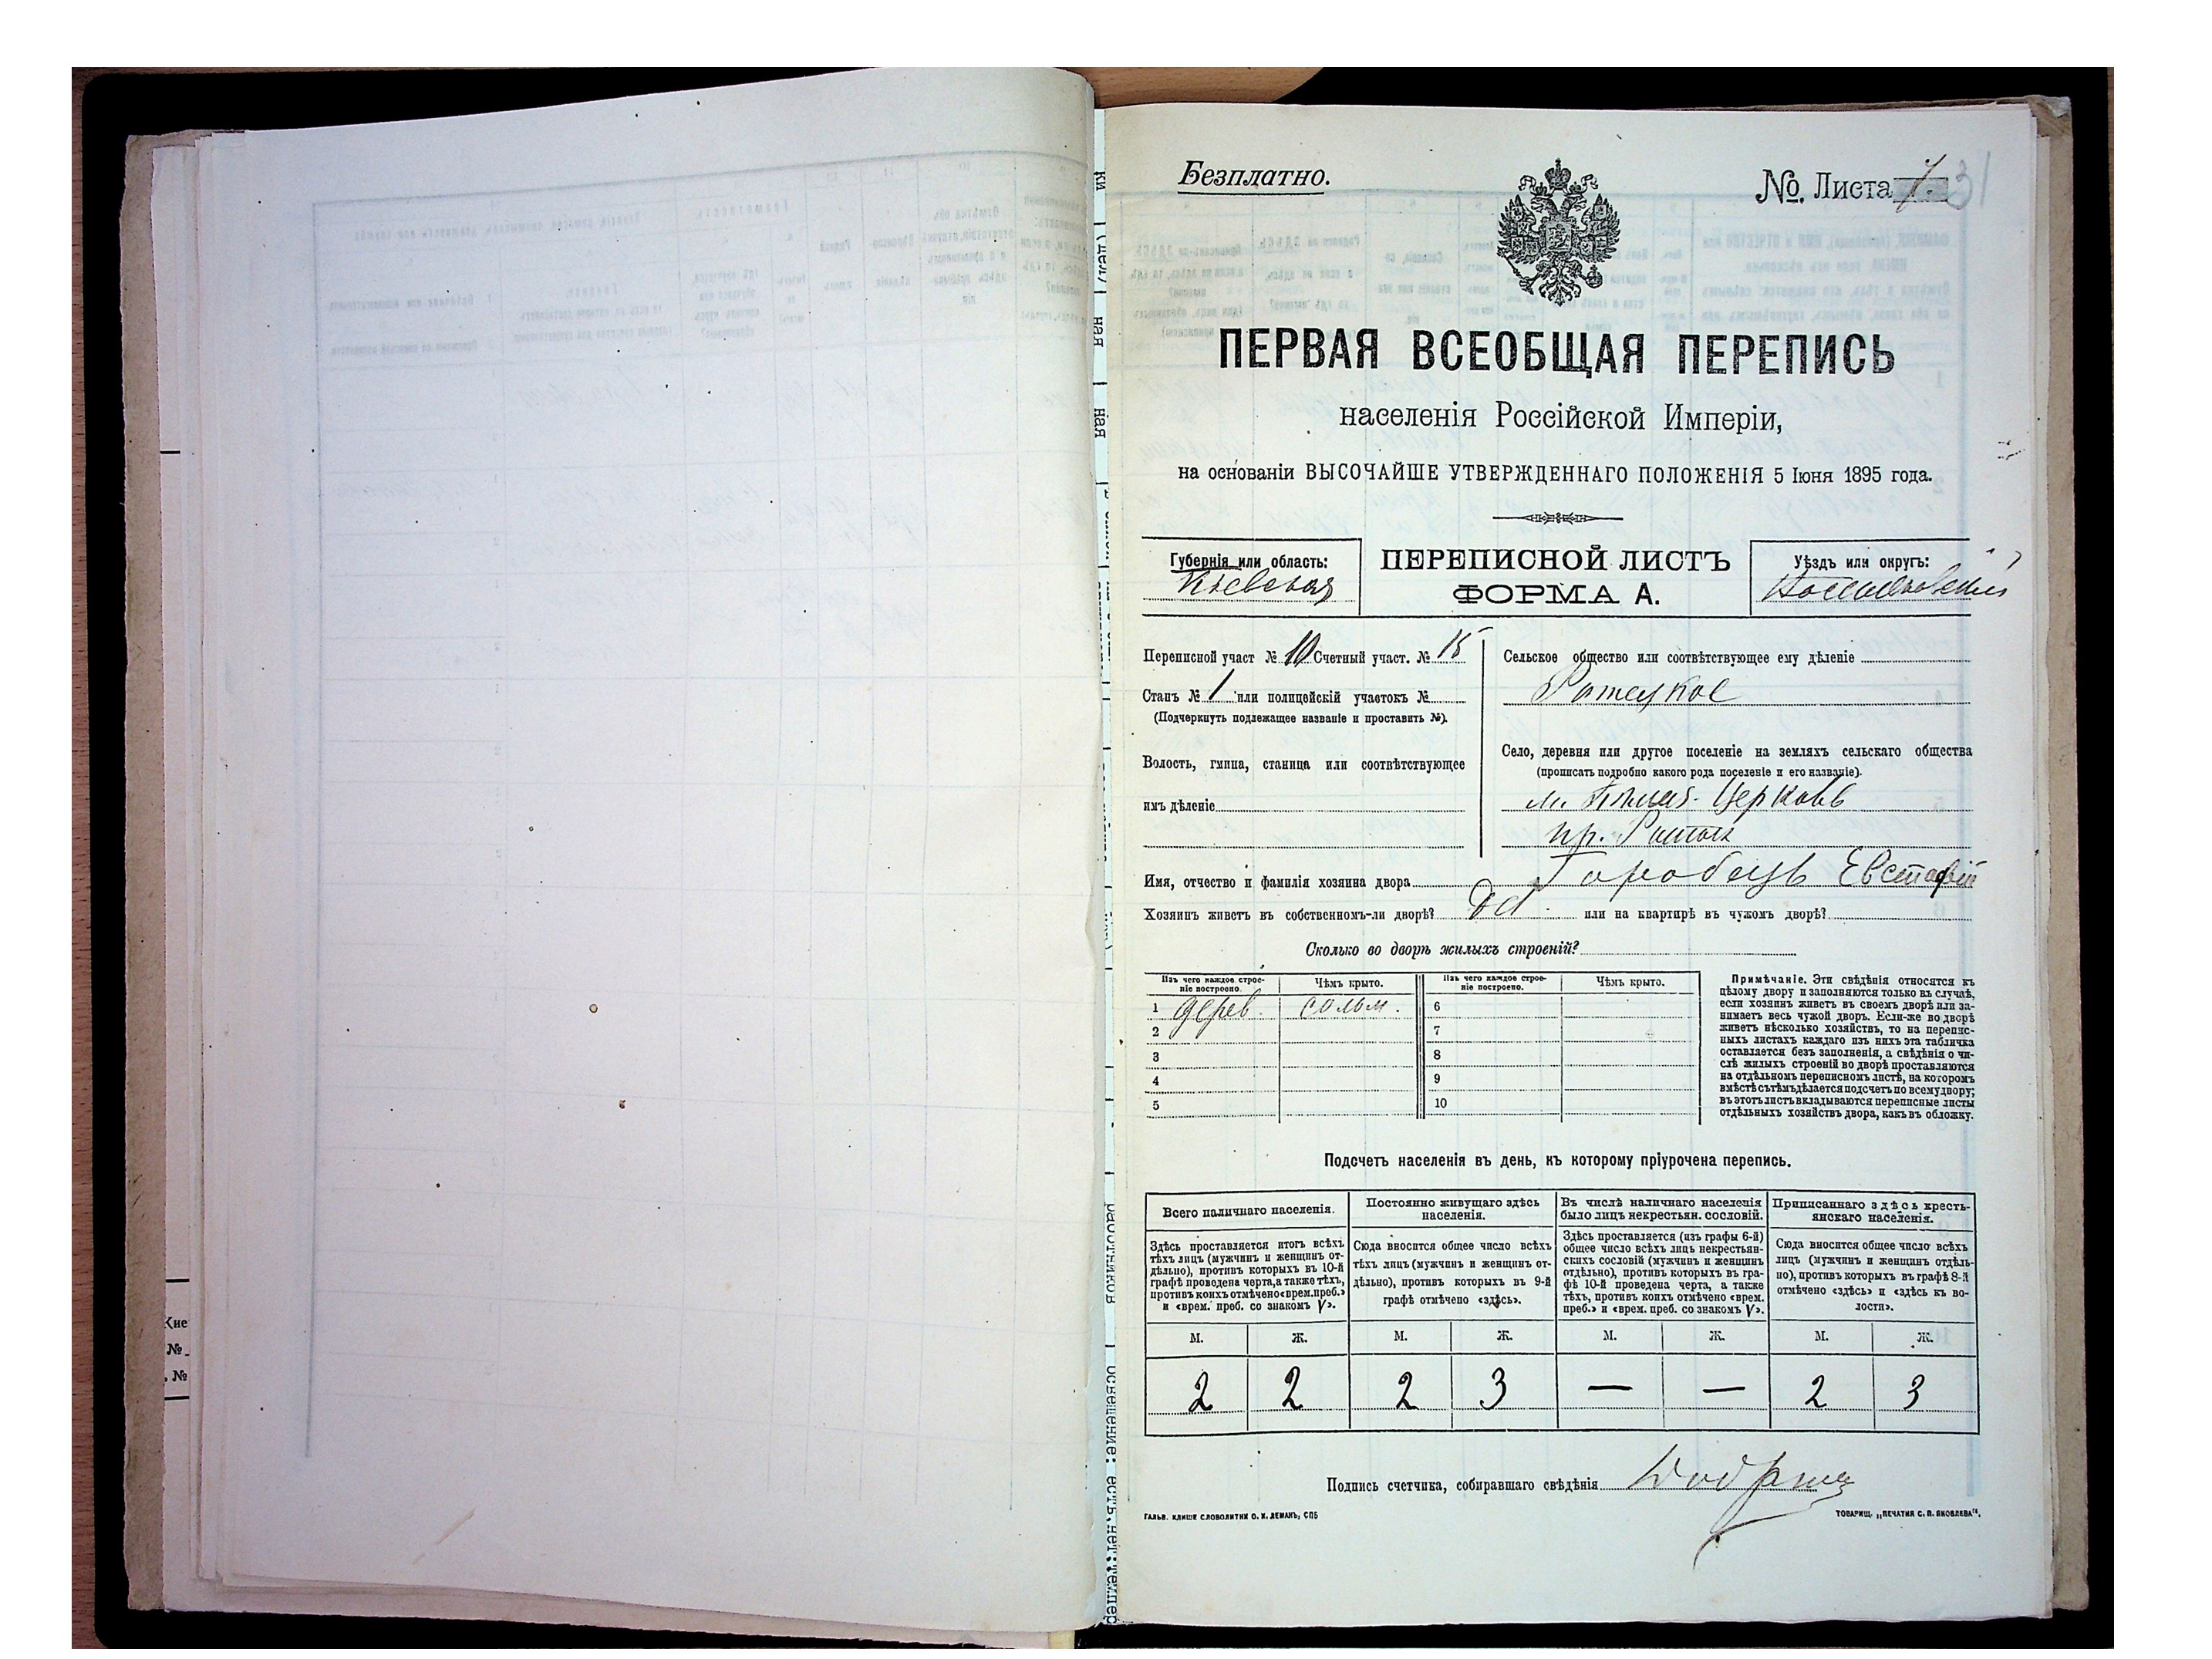 Безплатно.
№ Листа 7. 31
ПЕРВАЯ ВСЕОБЩАЯ ПЕРЕПИСЬ
населенія Россійской Имперіи,
на основаніи ВЫСОЧАЙШЕ УТВЕРЖДЕННАГО ПОЛОЖЕНІЯ 5 Іюня 1895 года.
Губернія или область:
Кіевская
ПЕРЕПИСНОЙ ЛИСТЪ
ФОРМА А.
Уѣздъ или округъ:
Васильковскій
Переписной участ № 10 Счетный участ. № 15
Станъ № 1 или полицейскій участокъ №
(Подчеркнуть подлежащее названіе и проставить №).
Волость, гмина, станица или соотвѣтствующее
имъ дѣленіе
Сельское общество или соотвѣтствующее ему дѣленіе
Ротецкое
Село, деревня или другое поселеніе на земляхъ сельскаго общества
(прописать подробно какого рода поселеніе и его названіе).
м. Бѣлая-Церковь
пр. Ротокъ
Имя, отчество и фамилія хозяина двора Горобецъ Евстафій
Хозяинъ живетъ въ собственномъ-ли дворѣ? Да. или на квартирѣ въ чужомъ дворѣ?
Сколько во дворѣ жилыхъ строеній?
Изъ чего каждое строе-
ніе построено.
Чѣмъ крыто.
Изъ чего каждое строе-
ніе построено.
Чѣмъ крыто.
1 дерев. солом. 6
2 7
3 8
4 9
5 10
Примѣчаніе. Эти свѣдѣнія относятся къ
цѣлому двору и заполняются только въ случаѣ,
если хозяинъ живетъ въ своемъ дворѣ или за-
нимаетъ весь чужой дворъ. Если-же во дворѣ
живетъ нѣсколько хозяйствъ, то на перепис-
ныхъ листахъ каждаго изъ нихъ эта табличка
оставляется безъ заполненія, а свѣдѣнія о чи-
слѣ жилыхъ строеній во дворѣ проставляются
на отдѣльномъ переписномъ листѣ, на которомъ
вмѣстѣ съ тѣмъ дѣлается подсчетъ по всему двору;
въ этотъ листъ вкладываются переписные листы
отдѣльныхъ хозяйствъ двора, какъ въ обложку.
Подсчетъ населенія въ день, къ которому пріурочена перепись.
Всего наличнаго населенія.
Постоянно живущаго здѣсь
населенія.
Въ числѣ наличнаго населенія
было лицъ некрестьян. сословій.
Приписаннаго здѣсь кресть-
янскаго населенія.
Здѣсь проставляется итогъ всѣхъ
тѣхъ лицъ (мужчинъ и женщинъ от-
дѣльно), противъ которыхъ въ 10-й
графѣ проведена черта, а также тѣхъ,
противъ коихъ отмѣчено «врем. преб.»
и «врем. преб. со знакомъ V».
Сюда вносится общее число всѣхъ
тѣхъ лицъ (мужчинъ и женщинъ от-
дѣльно), противъ которыхъ въ 9-й
графѣ отмѣчено «здѣсь».
Здѣсь проставляется (изъ графы 6-й)
общее число всѣхъ лицъ некрестьян-
скихъ сословій (мужчинъ и женщинъ
отдѣльно), противъ которыхъ въ гра-
фѣ 10-й проведена черта, а также
тѣхъ, противъ коихъ отмѣчено «врем.
преб.» и «врем. преб. со знакомъ V».
Сюда вносится общее число всѣхъ
лицъ (мужчинъ и женщинъ отдѣль-
но), противъ которыхъ въ графѣ 8-й
отмѣчено «здѣсь» и «здѣсь къ во-
лости».
М. Ж. М. Ж. М. Ж. М. Ж.
2 2 2 3 — — 2 3
Подпись счетчика, собиравшаго свѣдѣнія
ГАЛЬВ. КЛИШЕ СЛОВОЛИТНИ О. И. ЛЕМАНЪ, СПБ
ТОВАРИЩ. „ПЕЧАТНЯ С. П. ЯКОВЛЕВА“.